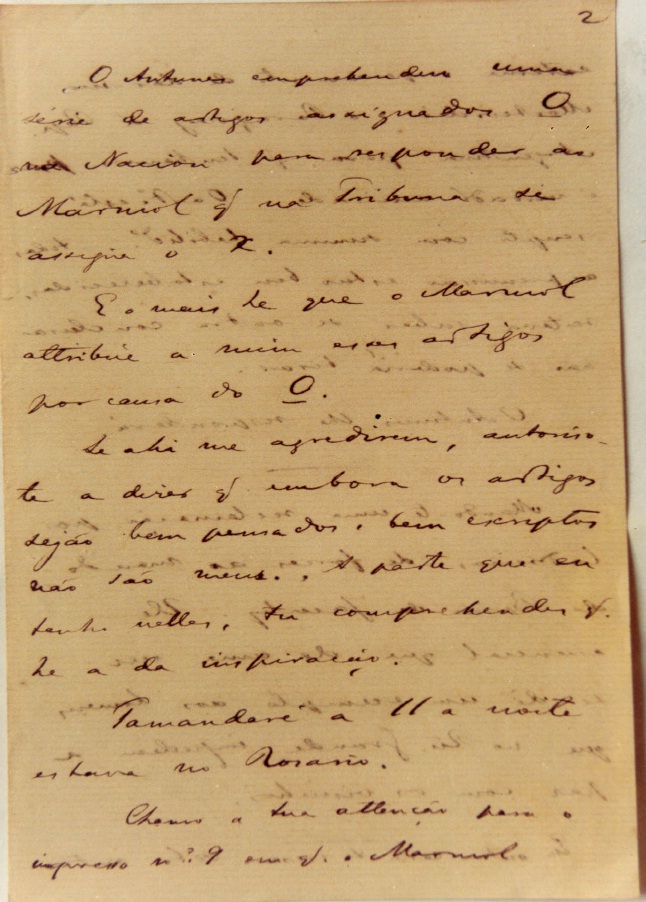 2
O Antunes emprehendeu uma
série de artigos assignados O
na Nacion para responder ao
Marmol q̃ na Tribuna se
assigna o X.
E o mais he que o Marmol
attribúe a mim esas artigos
por causa do O.
Se ahi me agredirem, autoriso-
te a dizer q̃ embora os artigos
sejão bem pensados, bem escriptos
não são meus. A parte que eu
tenho nelles, tu comprehendes q̃.
he a da inspiração.
Tamandaré a 11 a noite
estava no Rosario.
Chamo a tua attenção para o
impresso nº. 9 em q̃. o Marmol